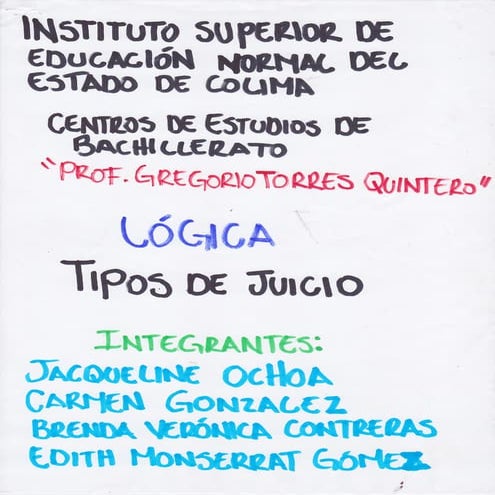 INSTITUTO SUPERIOR DE
EDUCACIÓN NORMAL DEL
ESTADO DE COLIMA
CENTROS DE ESTUDIOS DE
BACHILLERATO
"PROF. GREGORIO TORRES QUINTERO"
LÓGICA
TIPOS DE JUICIO
INTEGRANTES:
JACQUELINE OCHOA
CARMEN GONZALEZ
BRENDA VERÓNICA CONTRERAS
EDITH MONSERRAT GÓMEZ